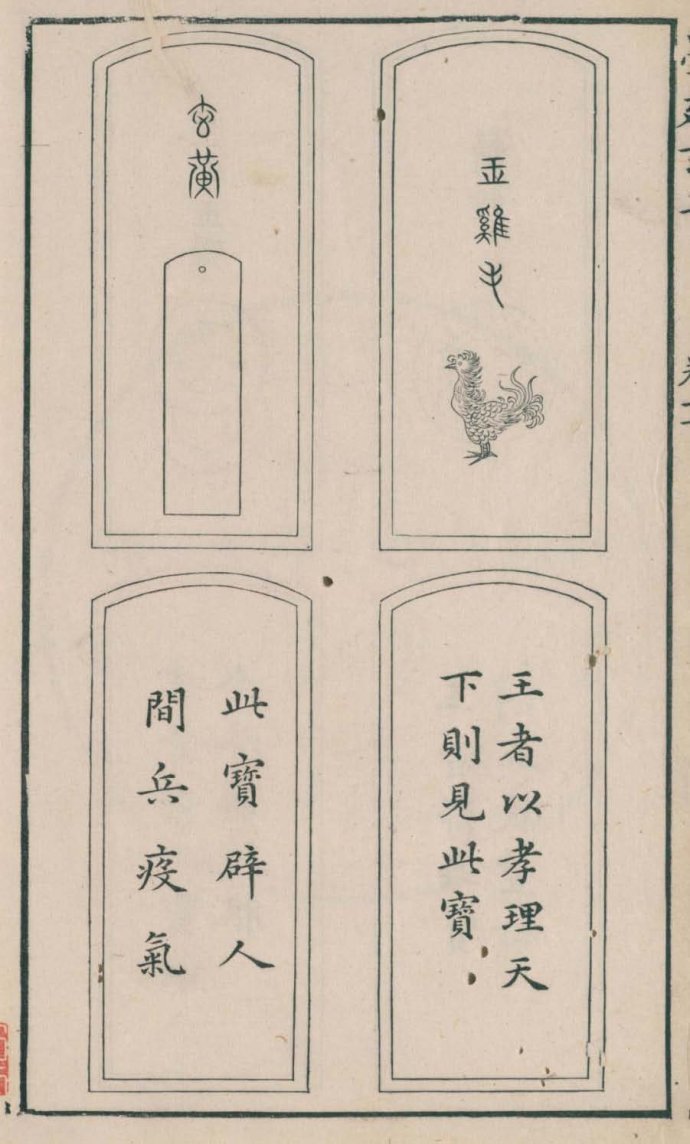 玉雞毛
王者以孝理天
下則見此寶
玄黃
此寶辟人
間兵疫氣